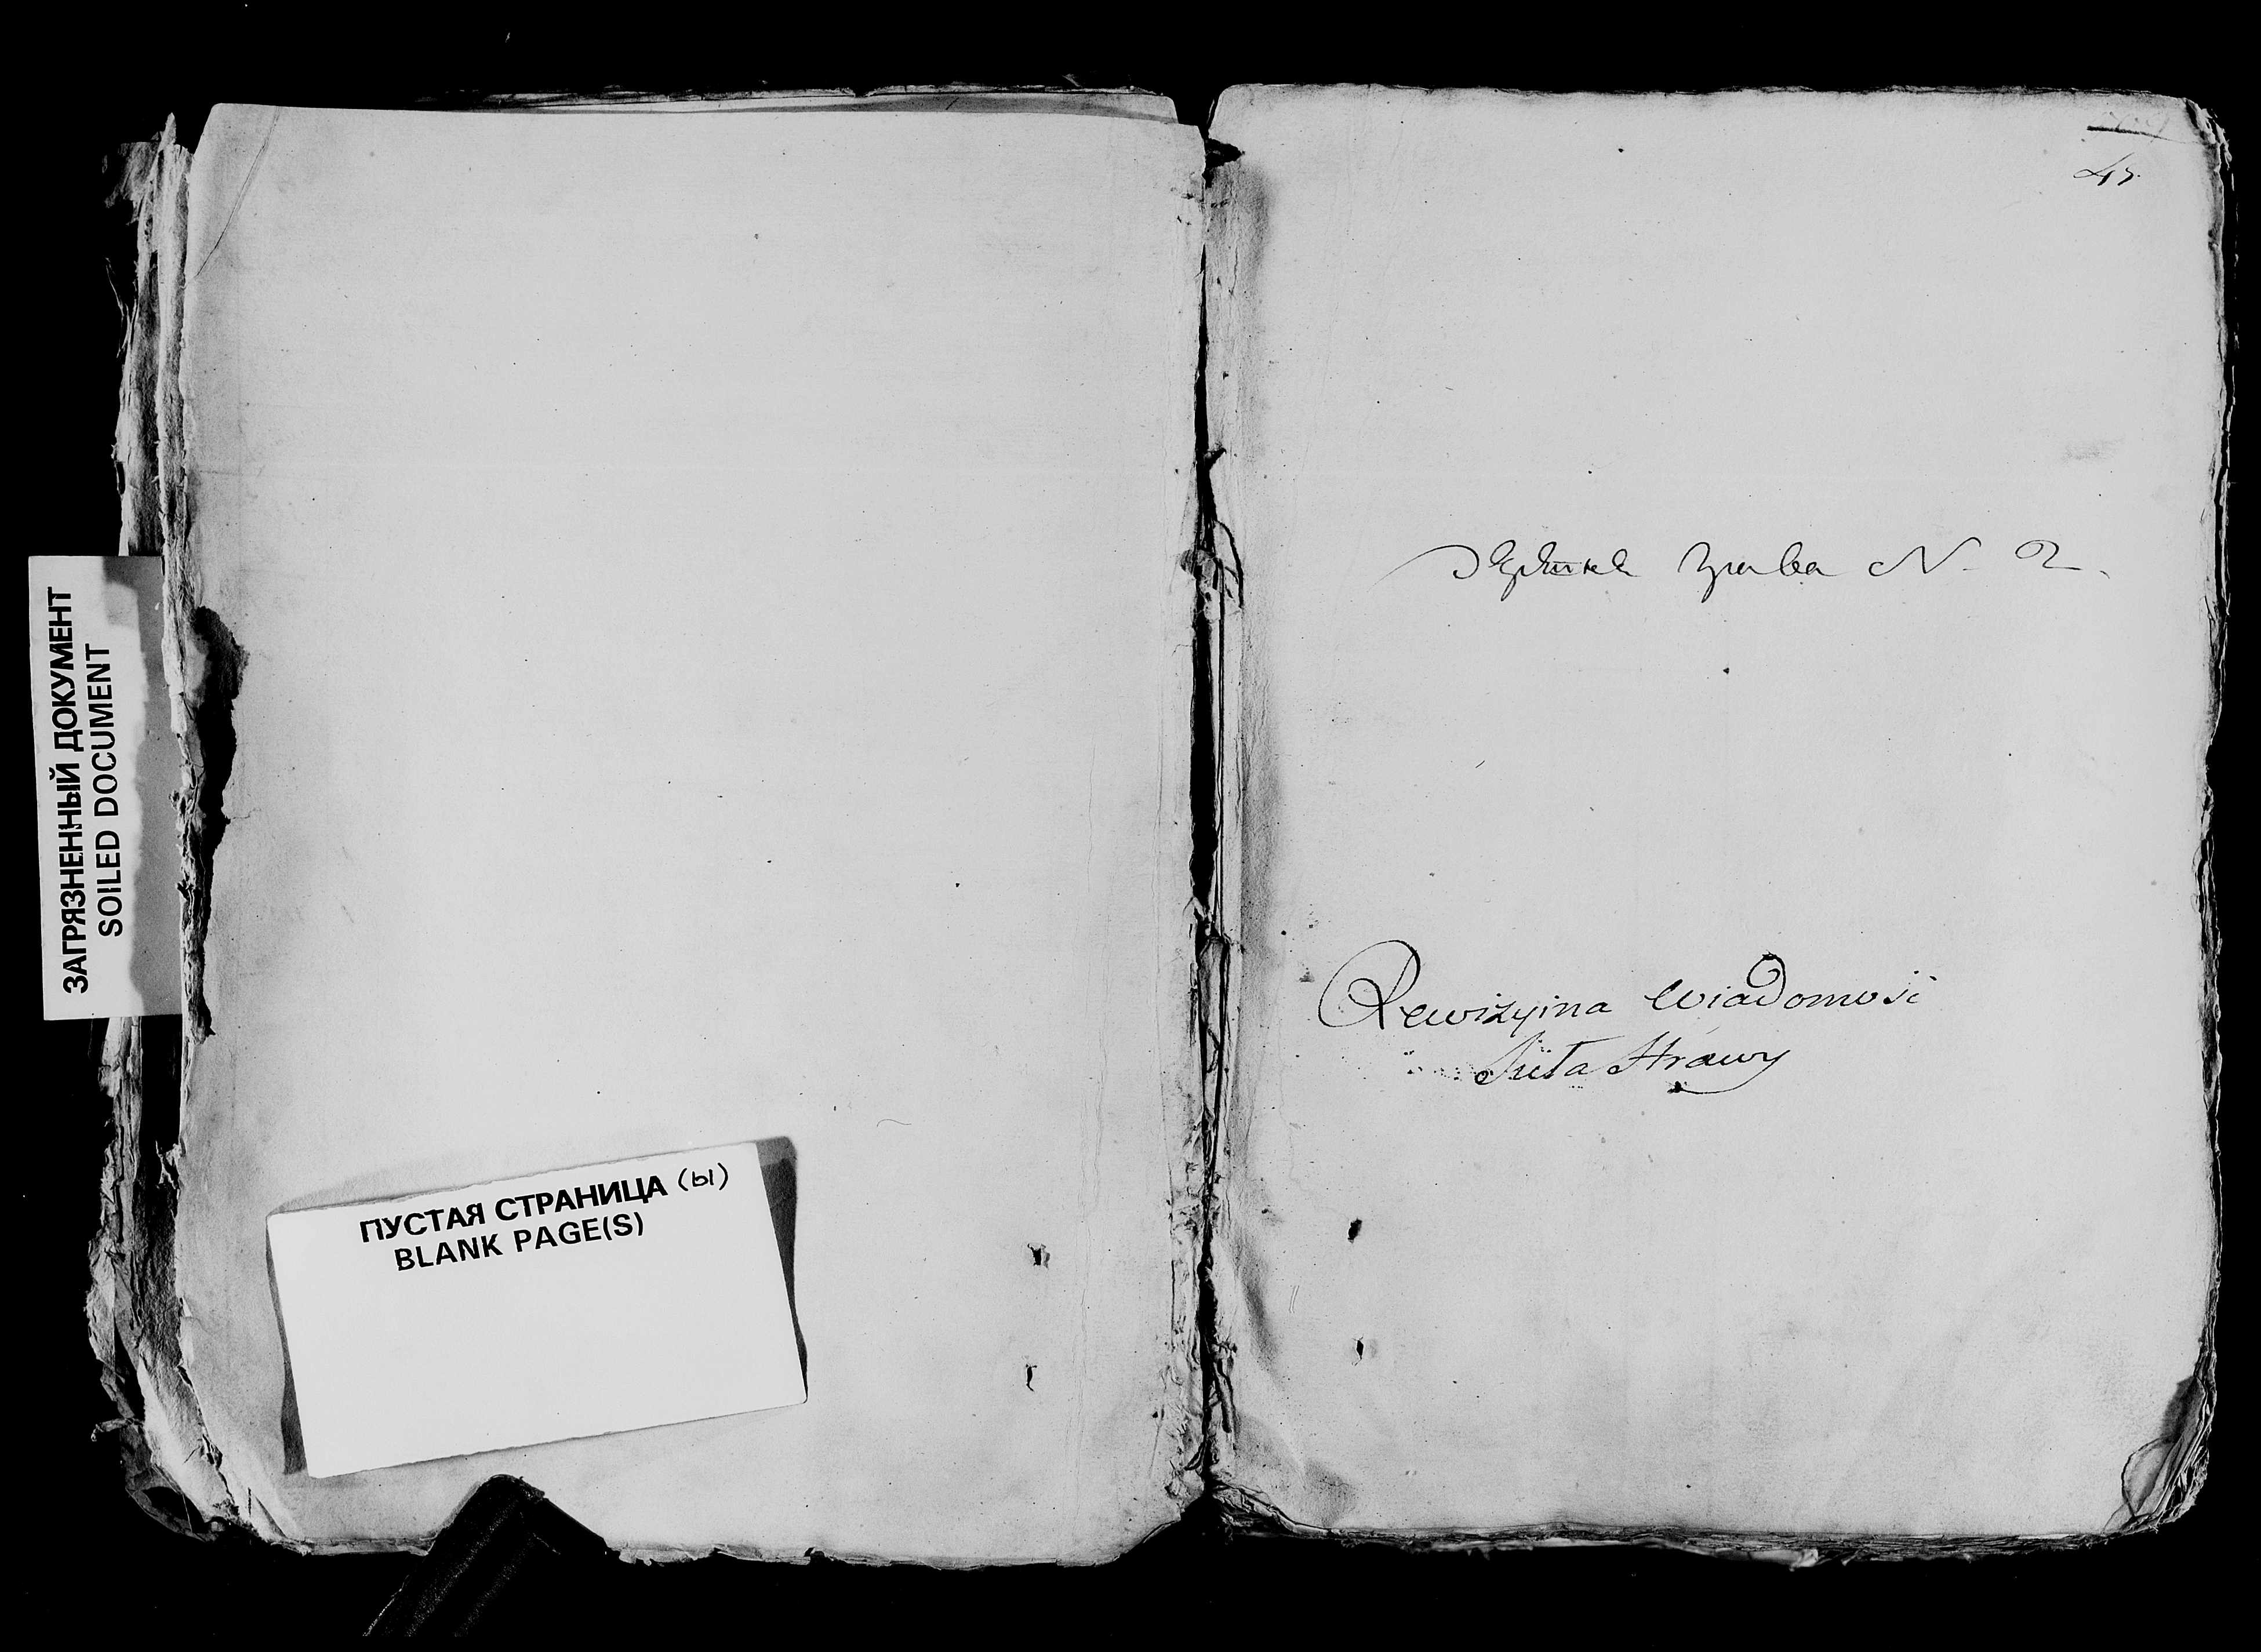 ЗАГРЯЗНЕННЫЙ ДОКУМЕНТ
SOILED DOCUMENT
ПУСТАЯ СТРАНИЦА (Ы)
BLANK PAGE(S)
N. 2.
Rewizyina Wiadomość
Sieła Strawy